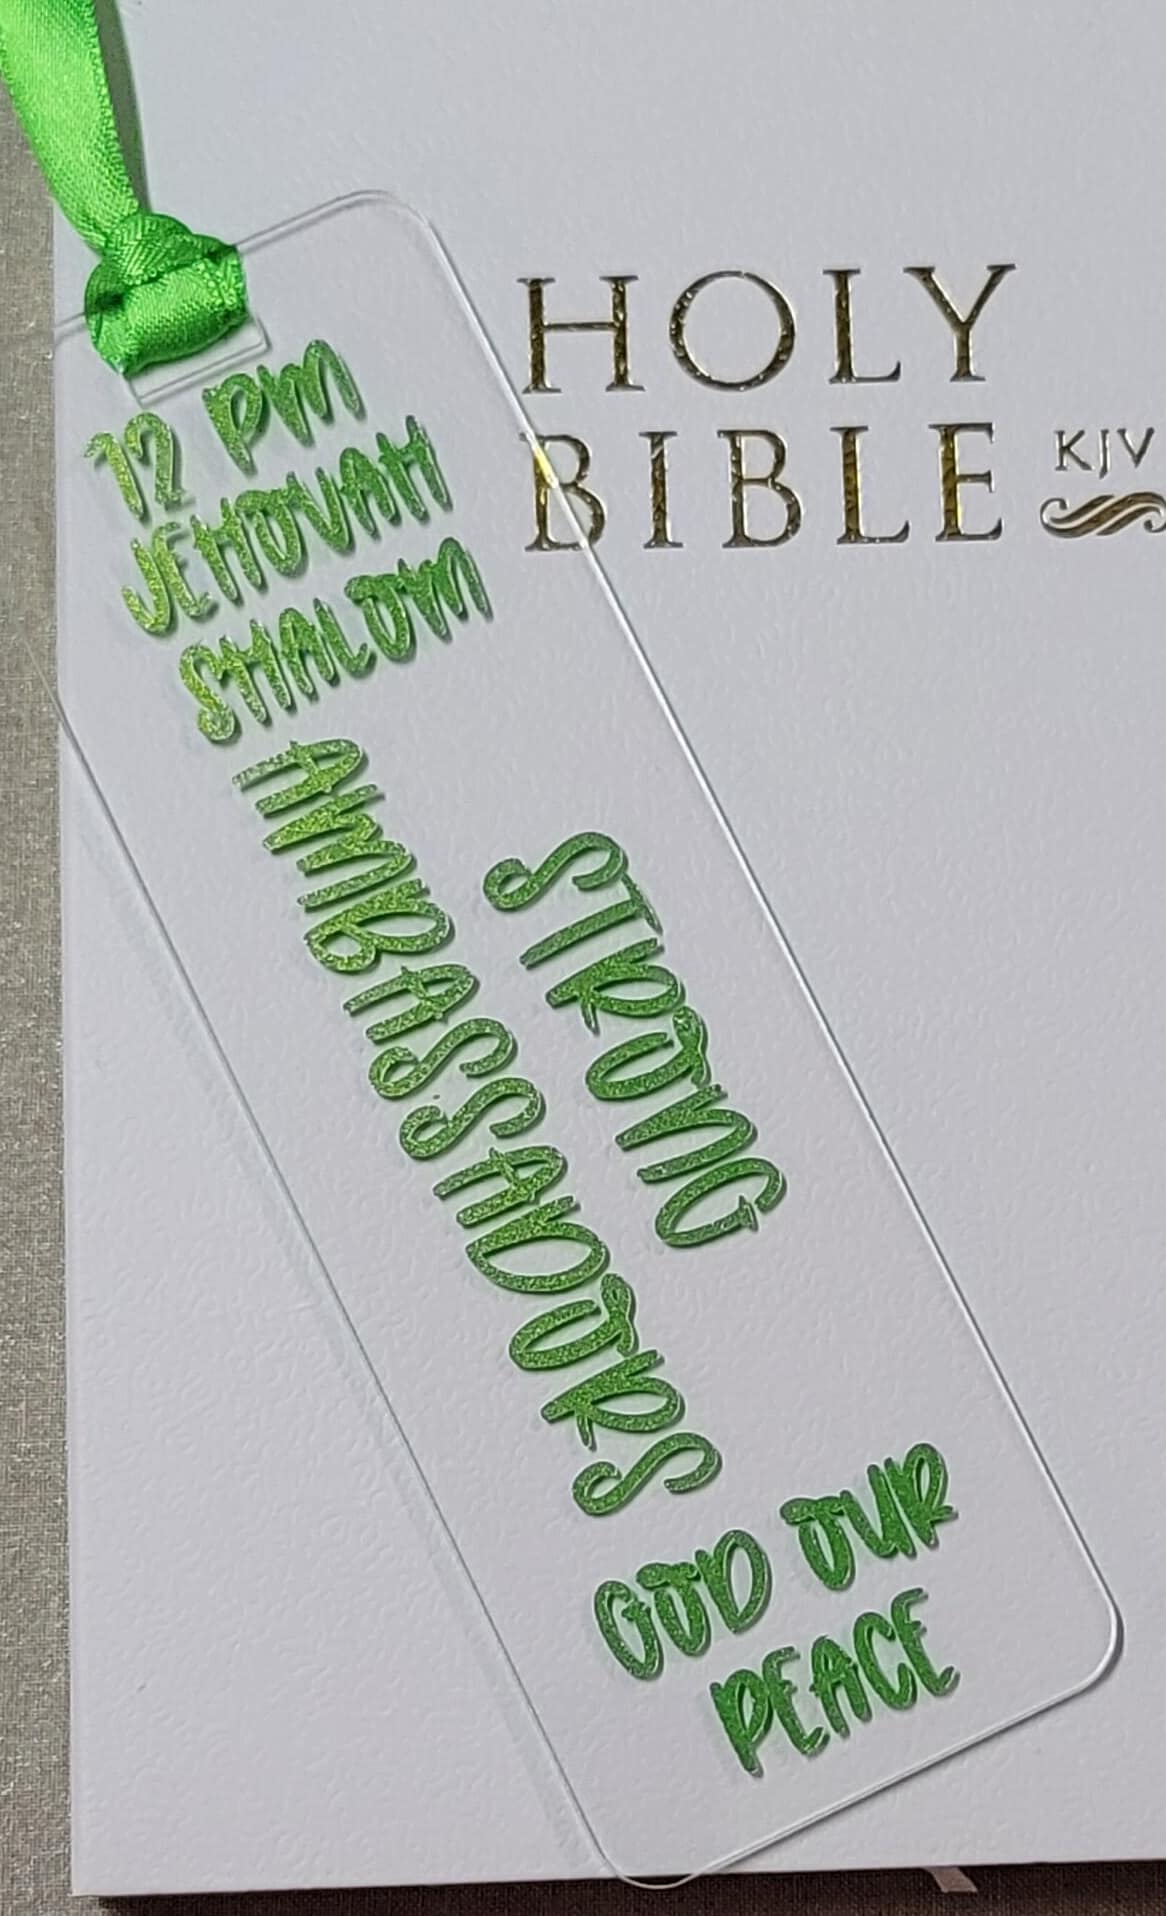 12 PM
JEHOVAH
SHALOM
STRONG
AMBASSADORS
GOD OUR
PEACE
HOLY
BIBLE KJV